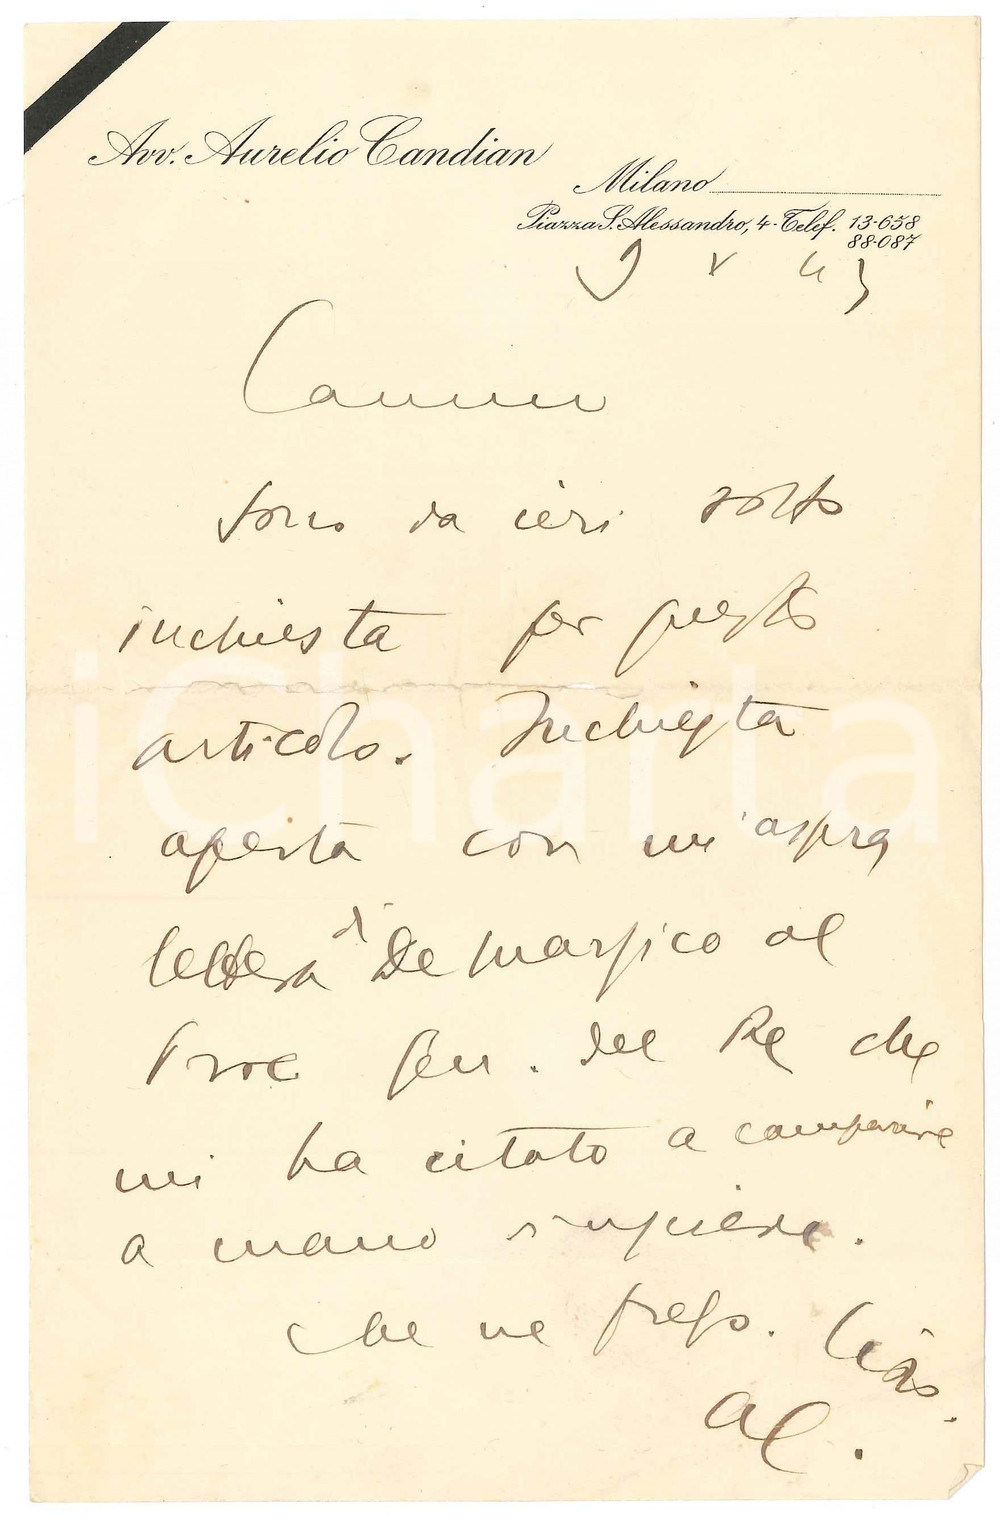 Avv. Aurelio Candian
Milano
Piazza S. Alessandro, 4 - Telef. 13-658
88-087
9 V 43
sono da ieri sotto
inchiesta per questo
articolo. Inchiesta
aperta con un'aspra
lettera di De Marsico al
Proc Gen. del Re che
mi ha citato a comparire
a mano
me ne frego. Ciao.
AC.
iCharta